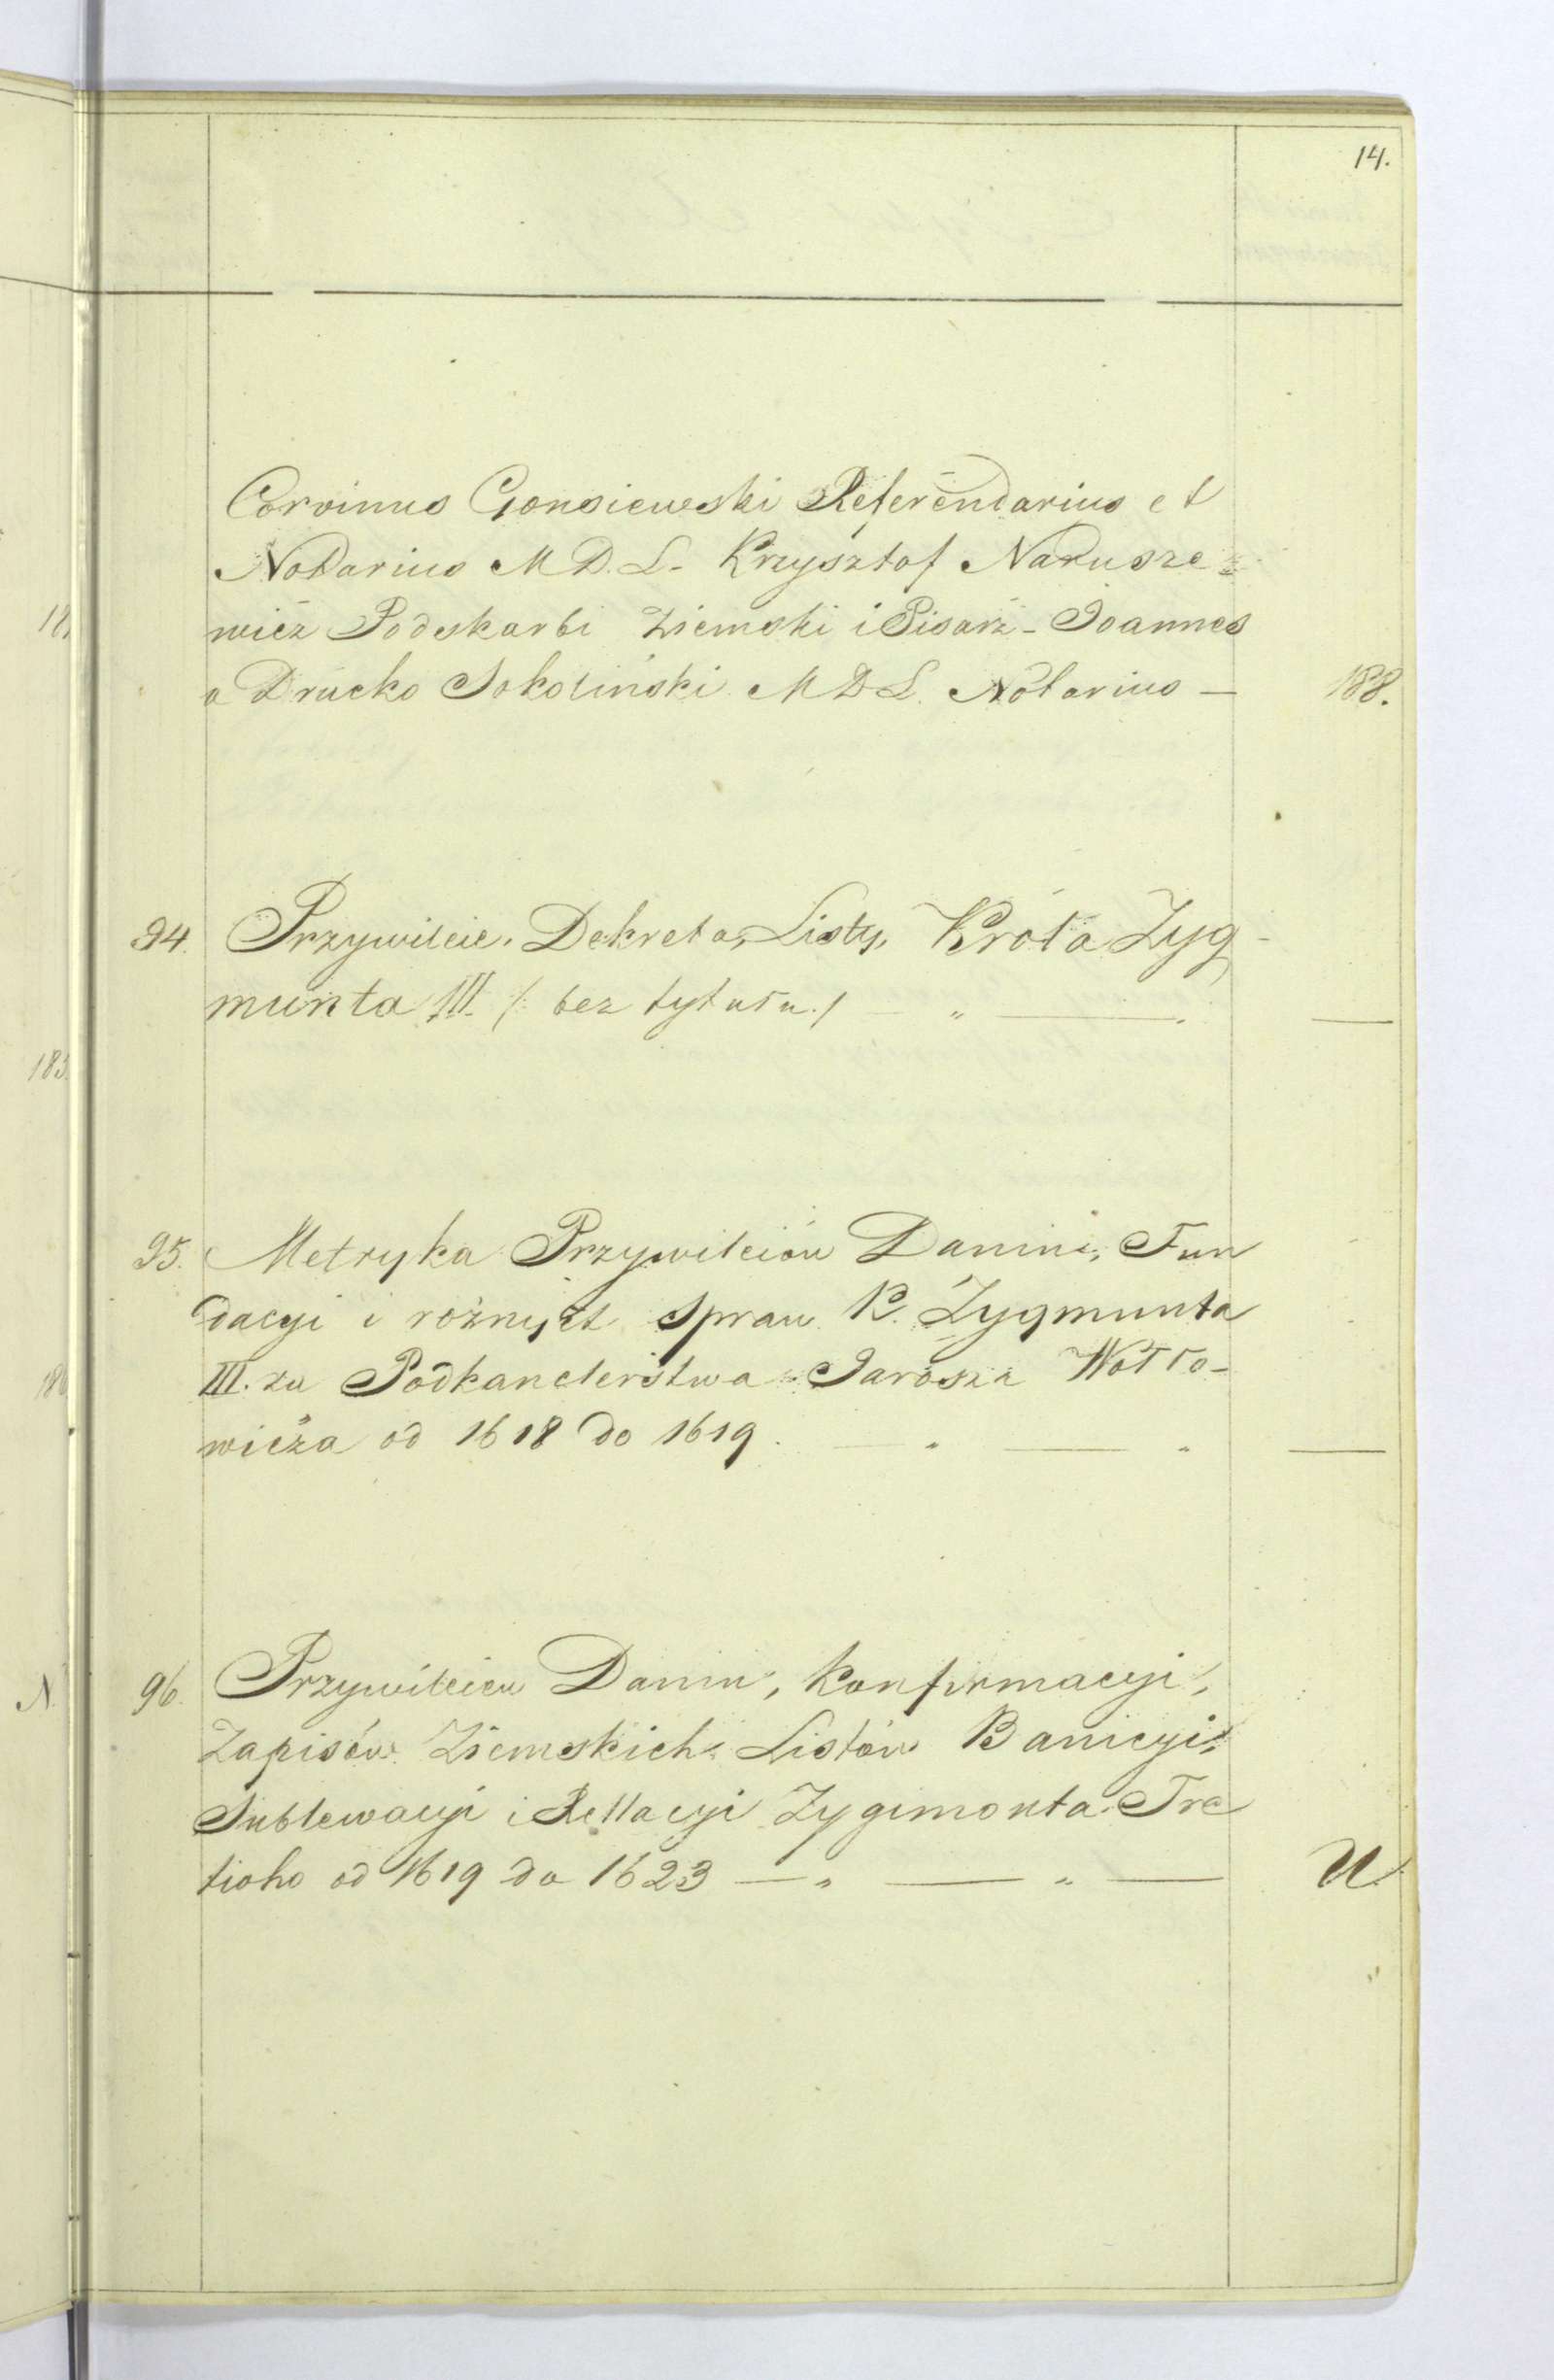 14.
Corvinus Gonsiewski Referendarius et
Notarius M D. L. Krzysztof Narusze-
wicz Podskarbi Ziemski i Pisarz - Joannes
a Drucko Sokoliński M D L. Notarius — 188.
94. Przywileie, Dekreta, Listy, Króla Zyg-
munta III. /: bez tytułu. / — „ — —
95. Metryka Przywileiów Danini, Fun
dacyi i rożnych spraw K. Zygmunta
III. za Podkanclerstwa Jarosza Wołło-
wicza od 1618 do 1619. — „ — „ —
96. Przywileiew Danin, Konfirmacyi,
Zapisów Ziemskich Listów Banicyi,
Sublewacyi i Rellacyi Zygimonta Tre
tioho od 1619 do 1623 — „ — „ — U.